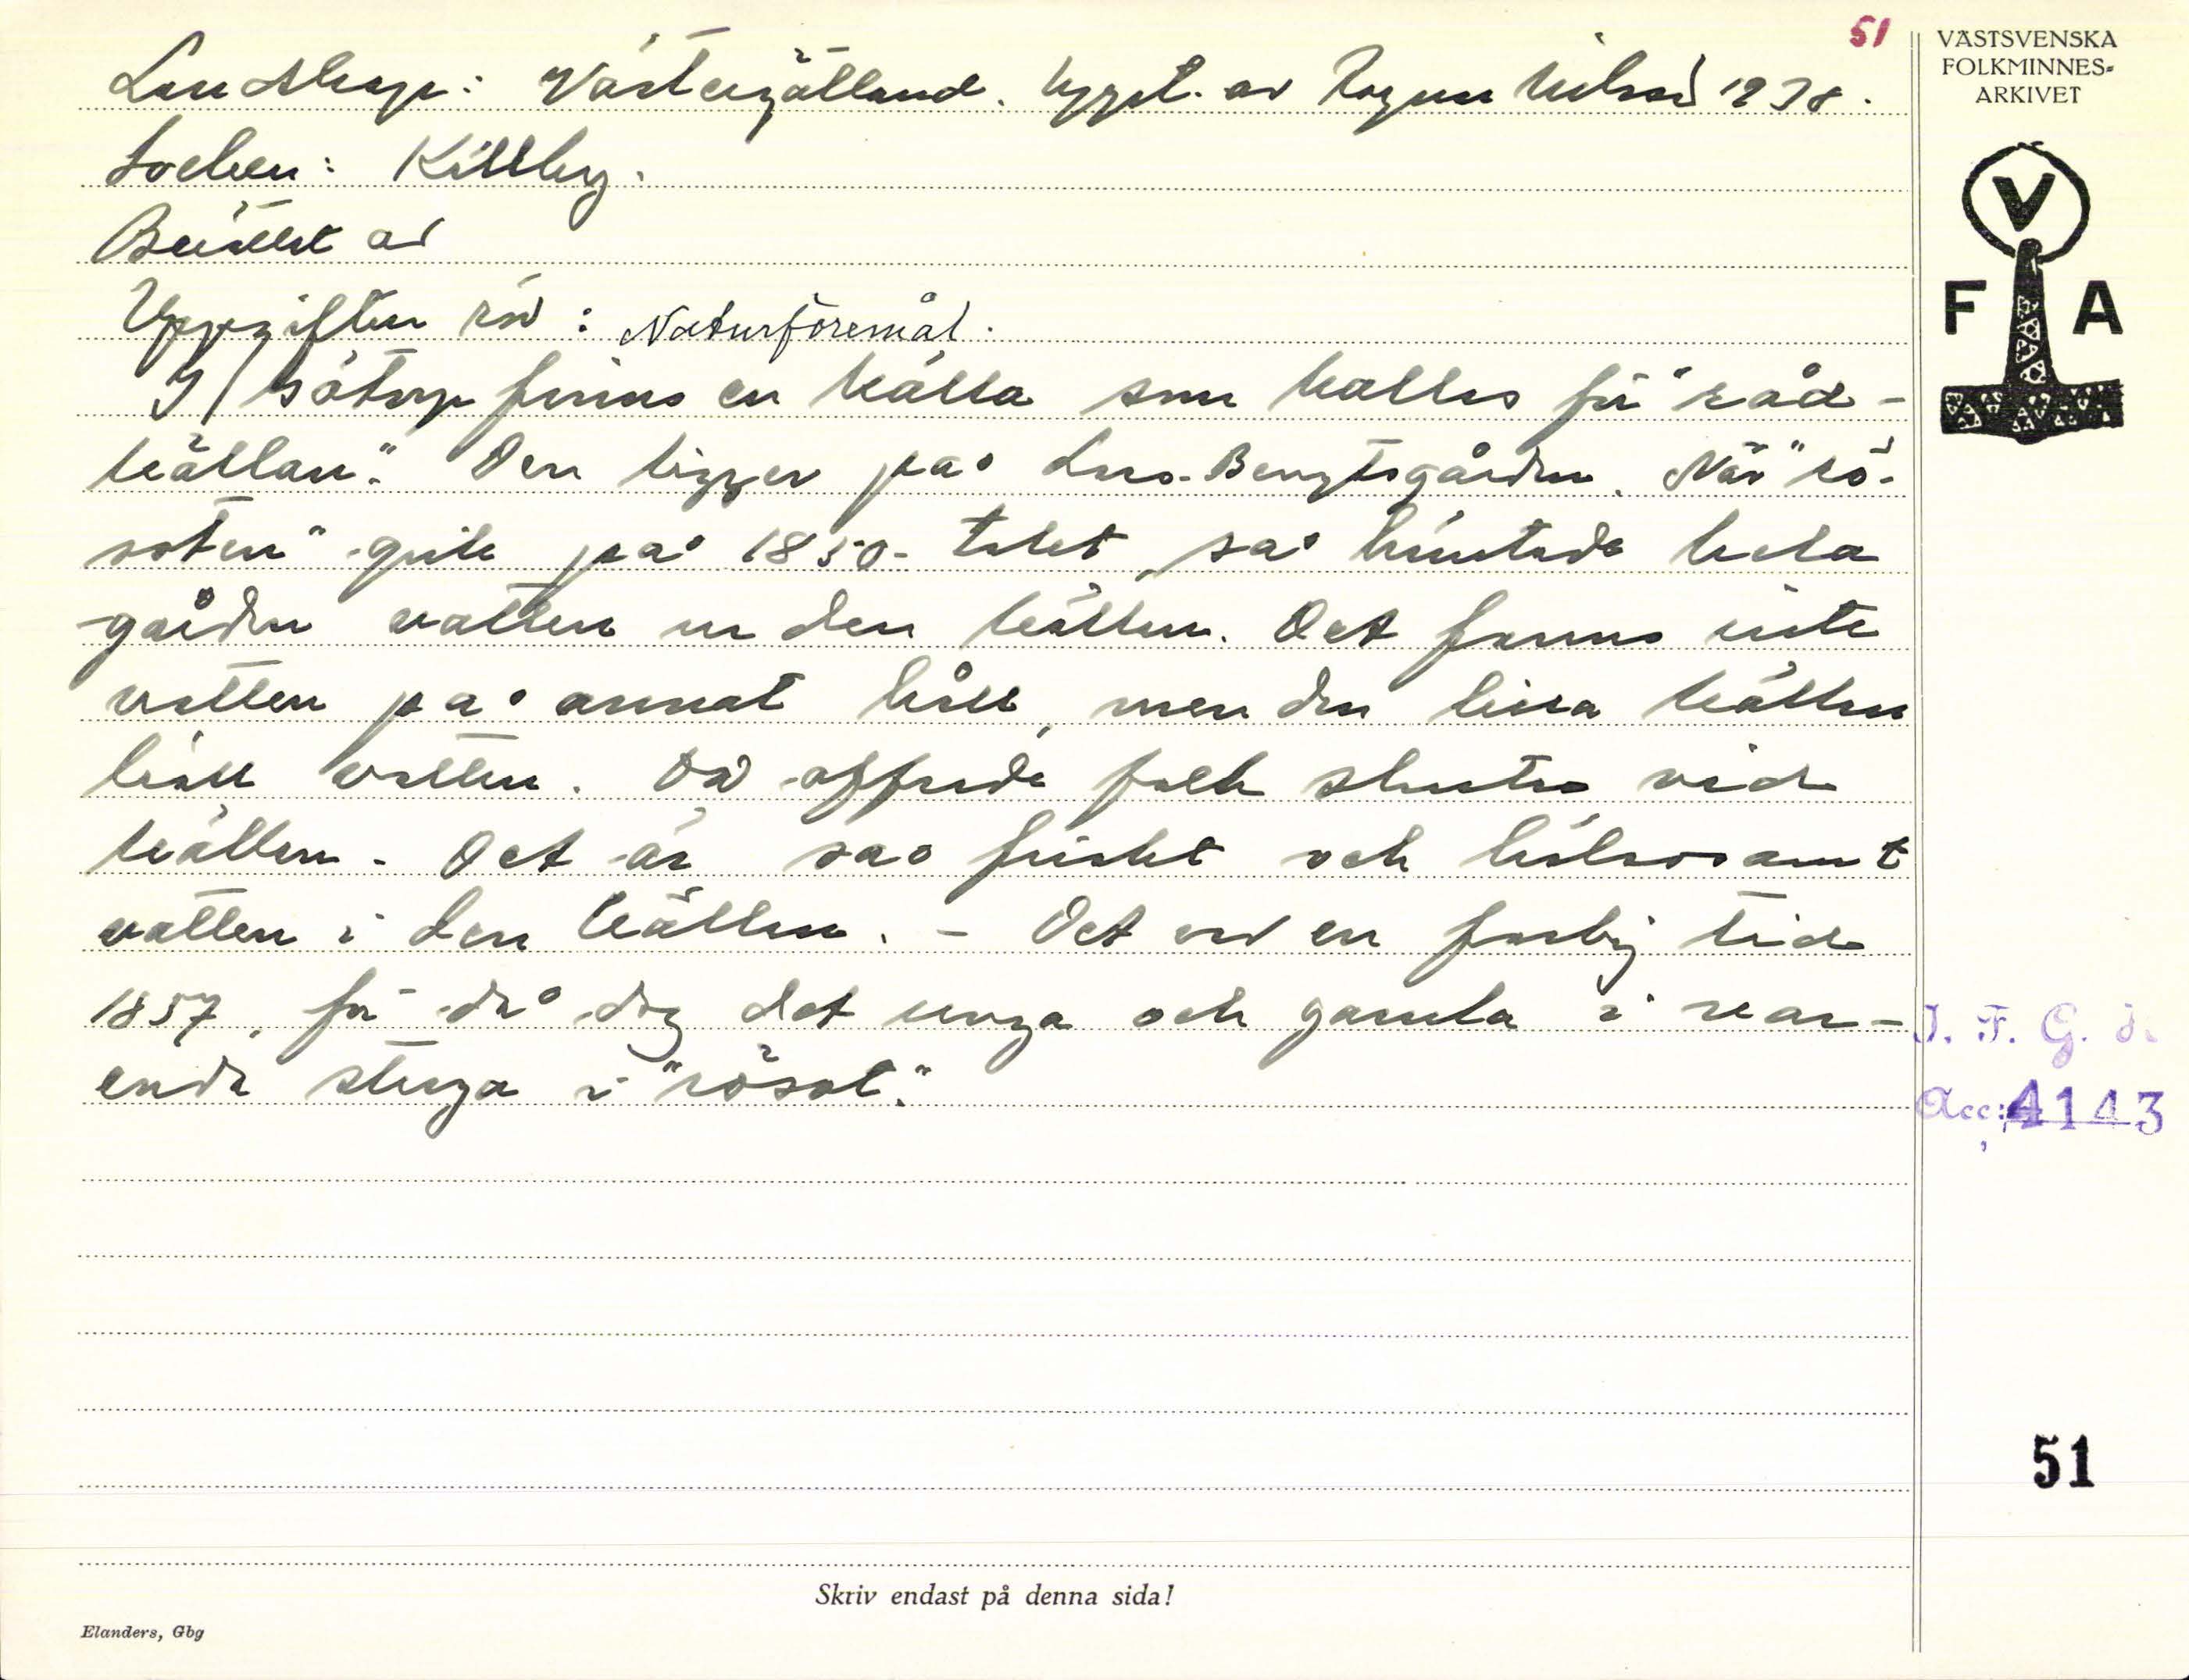 51
Landskap: Västergötland. Uppt. av Ragnar Nilsson 1938.
Socken: Källby.
Berättat av
Uppgiften rör: Naturföremål.
I finns en källa som kallas för "råd-
källan". Den ligger på Lars-Bengtsgården. När "rö-
soten" gick på 1850-talet, så hämtade hela
gården vatten ur den källan. Det fanns inte
vatten på annat håll, men den lilla källan
höll vatten. Då offrade folk slantar vid
källan. Det är så friskt och hälsosamt
vatten i den källan. - Det var en faslig tid
1857, för då dog det unga och gamla i var-
enda stuga i "rösot".
VÄSTSVENSKA
FOLKMINNES-
ARKIVET
V
F A
I. F. G. H.
Acc: 4143
51
Skriv endast på denna sida!
Elanders, Gbg